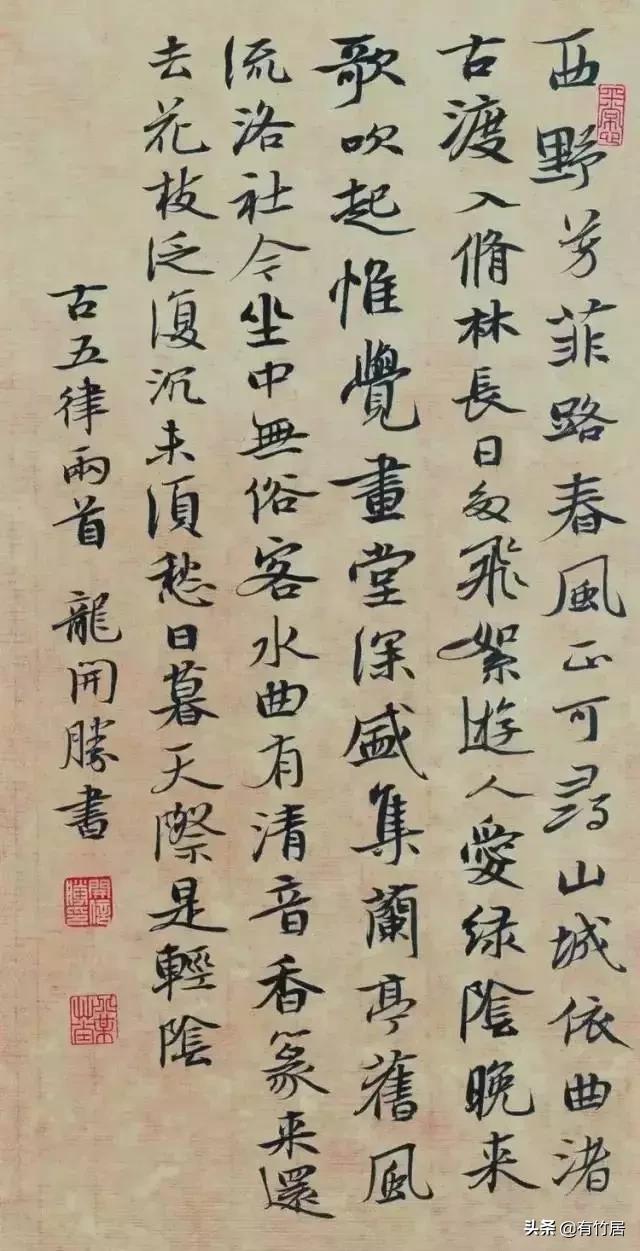 西野芳菲路春風正可尋山城依曲渚
古渡入脩林長日多飛絮遊人愛绿陰晚来
歌吹起惟覺畫堂深盛集蘭亭舊風
流洛社今坐中無俗客水曲有清音香篆来還
去花枝泛復沉未須愁日暮天際是輕陰
古五律兩首 龍開勝書
头条 @有竹居